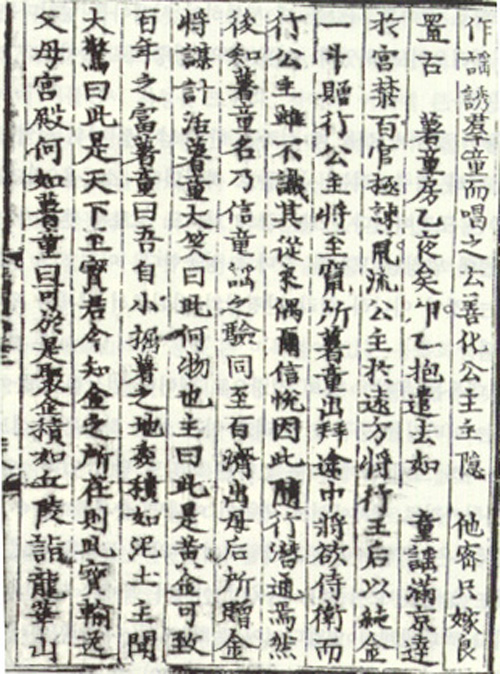 作謠誘羣童而唱之云善化公主主隱 他密只嫁良
置古 薯童房乙夜矣夘乙抱遣去如 童謠滿京達
扵宮禁百官極諫竄流公主扵遠方將行王后以純金
一斗贈行公主將至竄所薯童出拜途中將欲侍衛而
行公主雖不識其從來偶爾信悅因此隨行潛通焉然
後知薯童名乃信童謠之驗同至百濟出母后所贈金
將謀計活薯童大笑曰此何物也主曰此是黃金可致
百年之富薯童曰吾自小掘薯之地委積如泥土主聞
大驚曰此是天下至寶君今知金之所在則此寶輸送
父母宮殿何如薯童曰可於是聚金積如丘陵詣龍華山